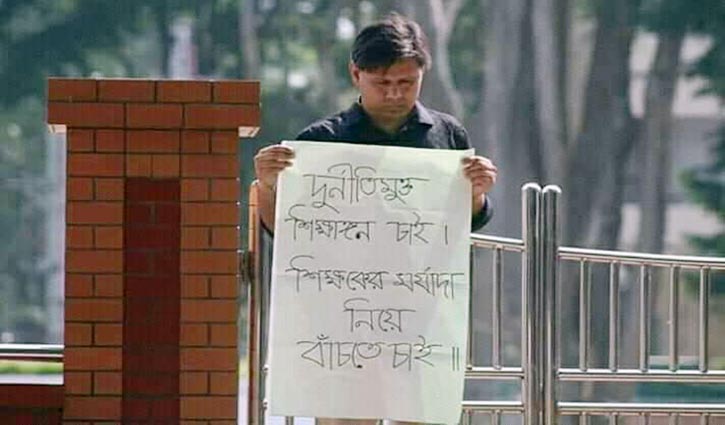 দুর্নীতিমুক্ত
শিক্ষাঙ্গন চাই।
শিক্ষকের মর্যাদা
নিয়ে
বাঁচতে চাই॥